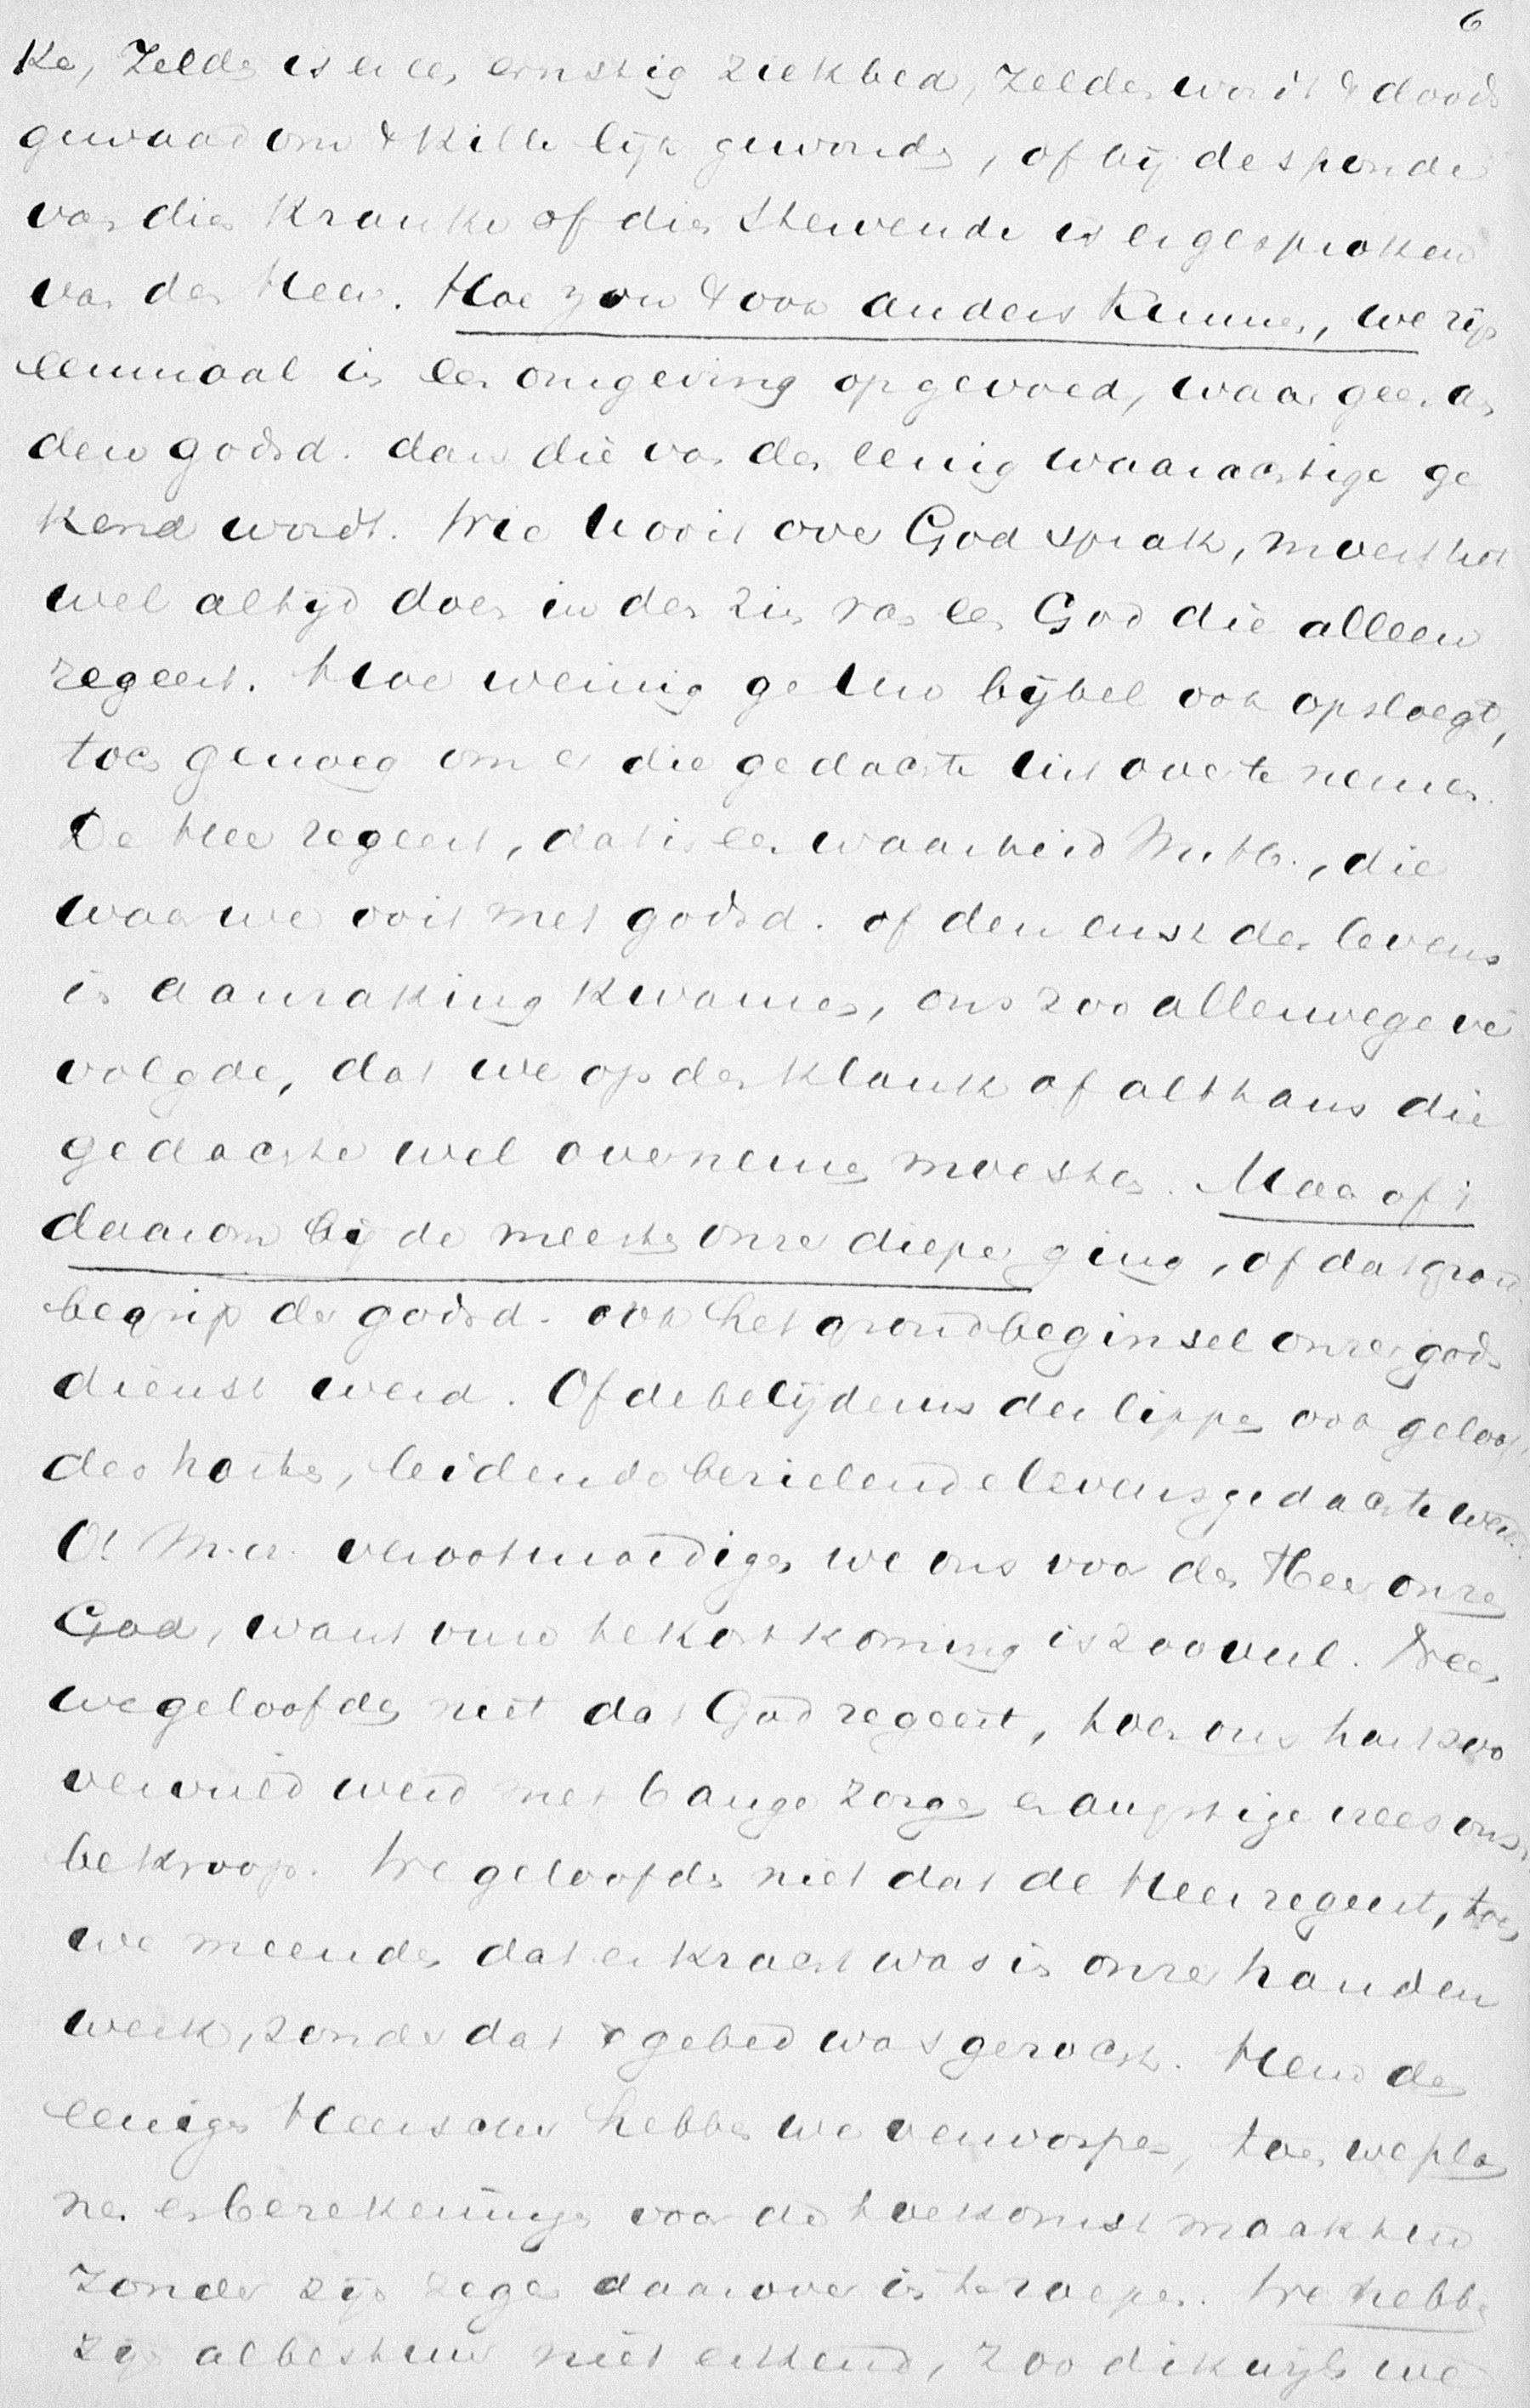 6
ke, zelden is er een ernstig ziekbed, zelden wordt 't doods
gewaad om 't kille lijk gewonden, of bij de sponde
van dien kranke of dien stervende is er gesproken
van den Heer. Hoe zou 't ook anders kunnen, we zijn
eenmaal in een omgeving opgevoed, waar geen an
dere godsd. dan die van den eenig waarachtige ge
kend wordt. Wie hooit over God sprak, moest het
wel altijd doen in den zin van een God die alleen
regeert. Hoe weinig ge Uw bijbel ook opsloegt,
toch genoeg om er die gedachte uit over te nemen.
De Heer regeert, dat is een waarheid M.H., die
waar we ooit met godsd. of den ernst des levens
in aanraking kwamen, ons zoo allerwege ver
volgde, dat we op den klank af althans die
gedachte wel overnemen moesten. Maar of 't
daarom bij de meesten onzer dieper ging, of dat grond
begrip der godsd. ook het grondbeginsel onzer gods
dienst werd. Of de belijdenis der lippen ook geloof
des harten, leidende bezielende levensgedachte werd.
O! M.H. verootmoedigen we ons voor den Heer onzen
God, want onze tekortkoming is zoo veel. Neen
we geloofden niet dat God regeert, toen ons hart zoo
vervuld werd met bange zorgen en angstige vrees ons
bekroop. We geloofden niet dat de Heer regeert, toen
we meenden dat er kracht was in onzer handen
werk, zonder dat 't gebed was gerocht. Hem den
eenigen Heerscher hebben we verworpen, toen we plan
nen en berekeningen voor de toekomst maakten
zonder zijn zegen daarover in te roepen. We hebben
zijn albestuur niet erkend, zoo dikwijls we